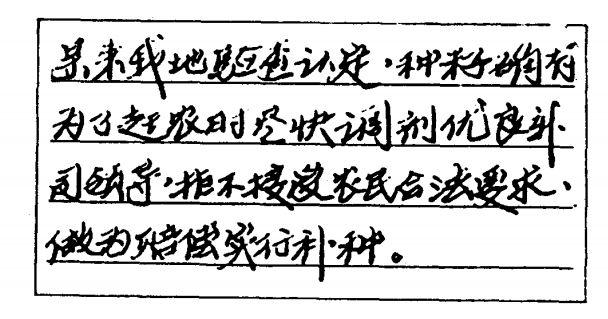 某来我地验查认定，种籽确有
为了赶农时尽快调剂优良补
司领导，拒不接设农民合法要求、
做为赔偿实行补种。